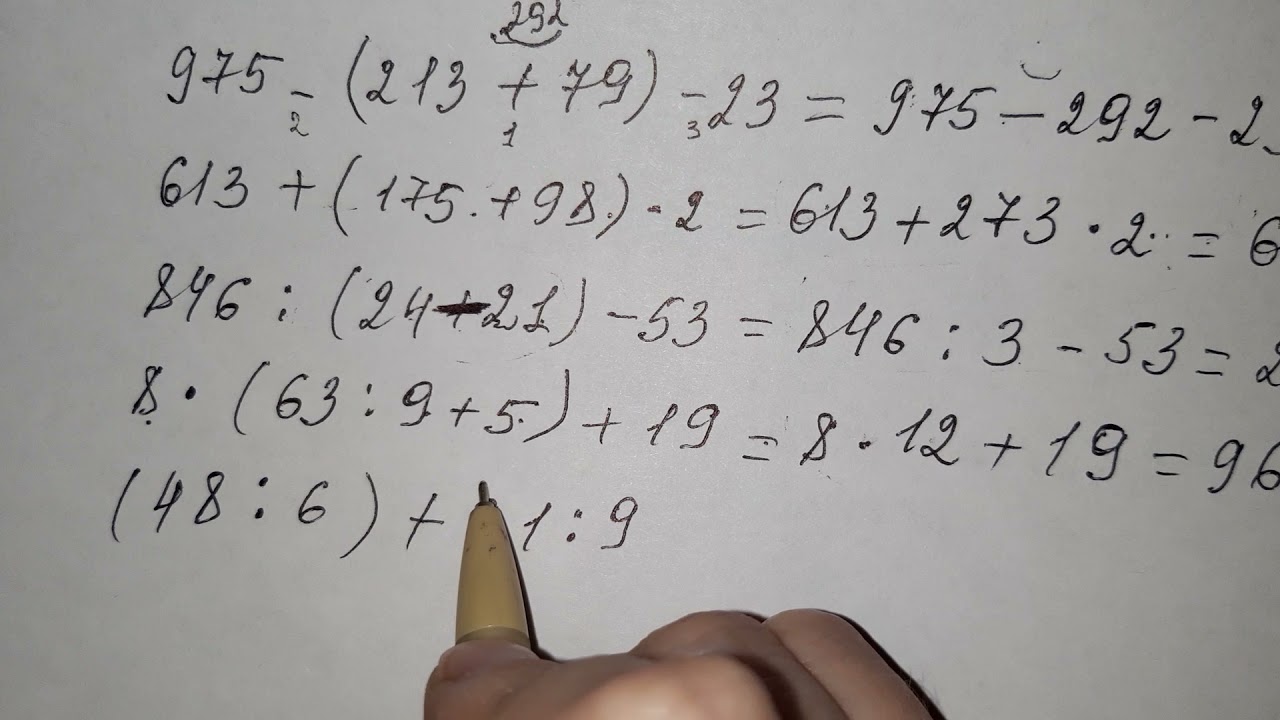 292
975 - (213 + 79) - 23 = 975 - 292 - 2
2 1 3
613 + (175 + 98) · 2 = 613 + 273 · 2 = 6
846 : (24 - 21) - 53 = 846 : 3 - 53 = 2
8 · (63 : 9 + 5) + 19 = 8 · 12 + 19 = 96
(48 : 6) + 1 : 9